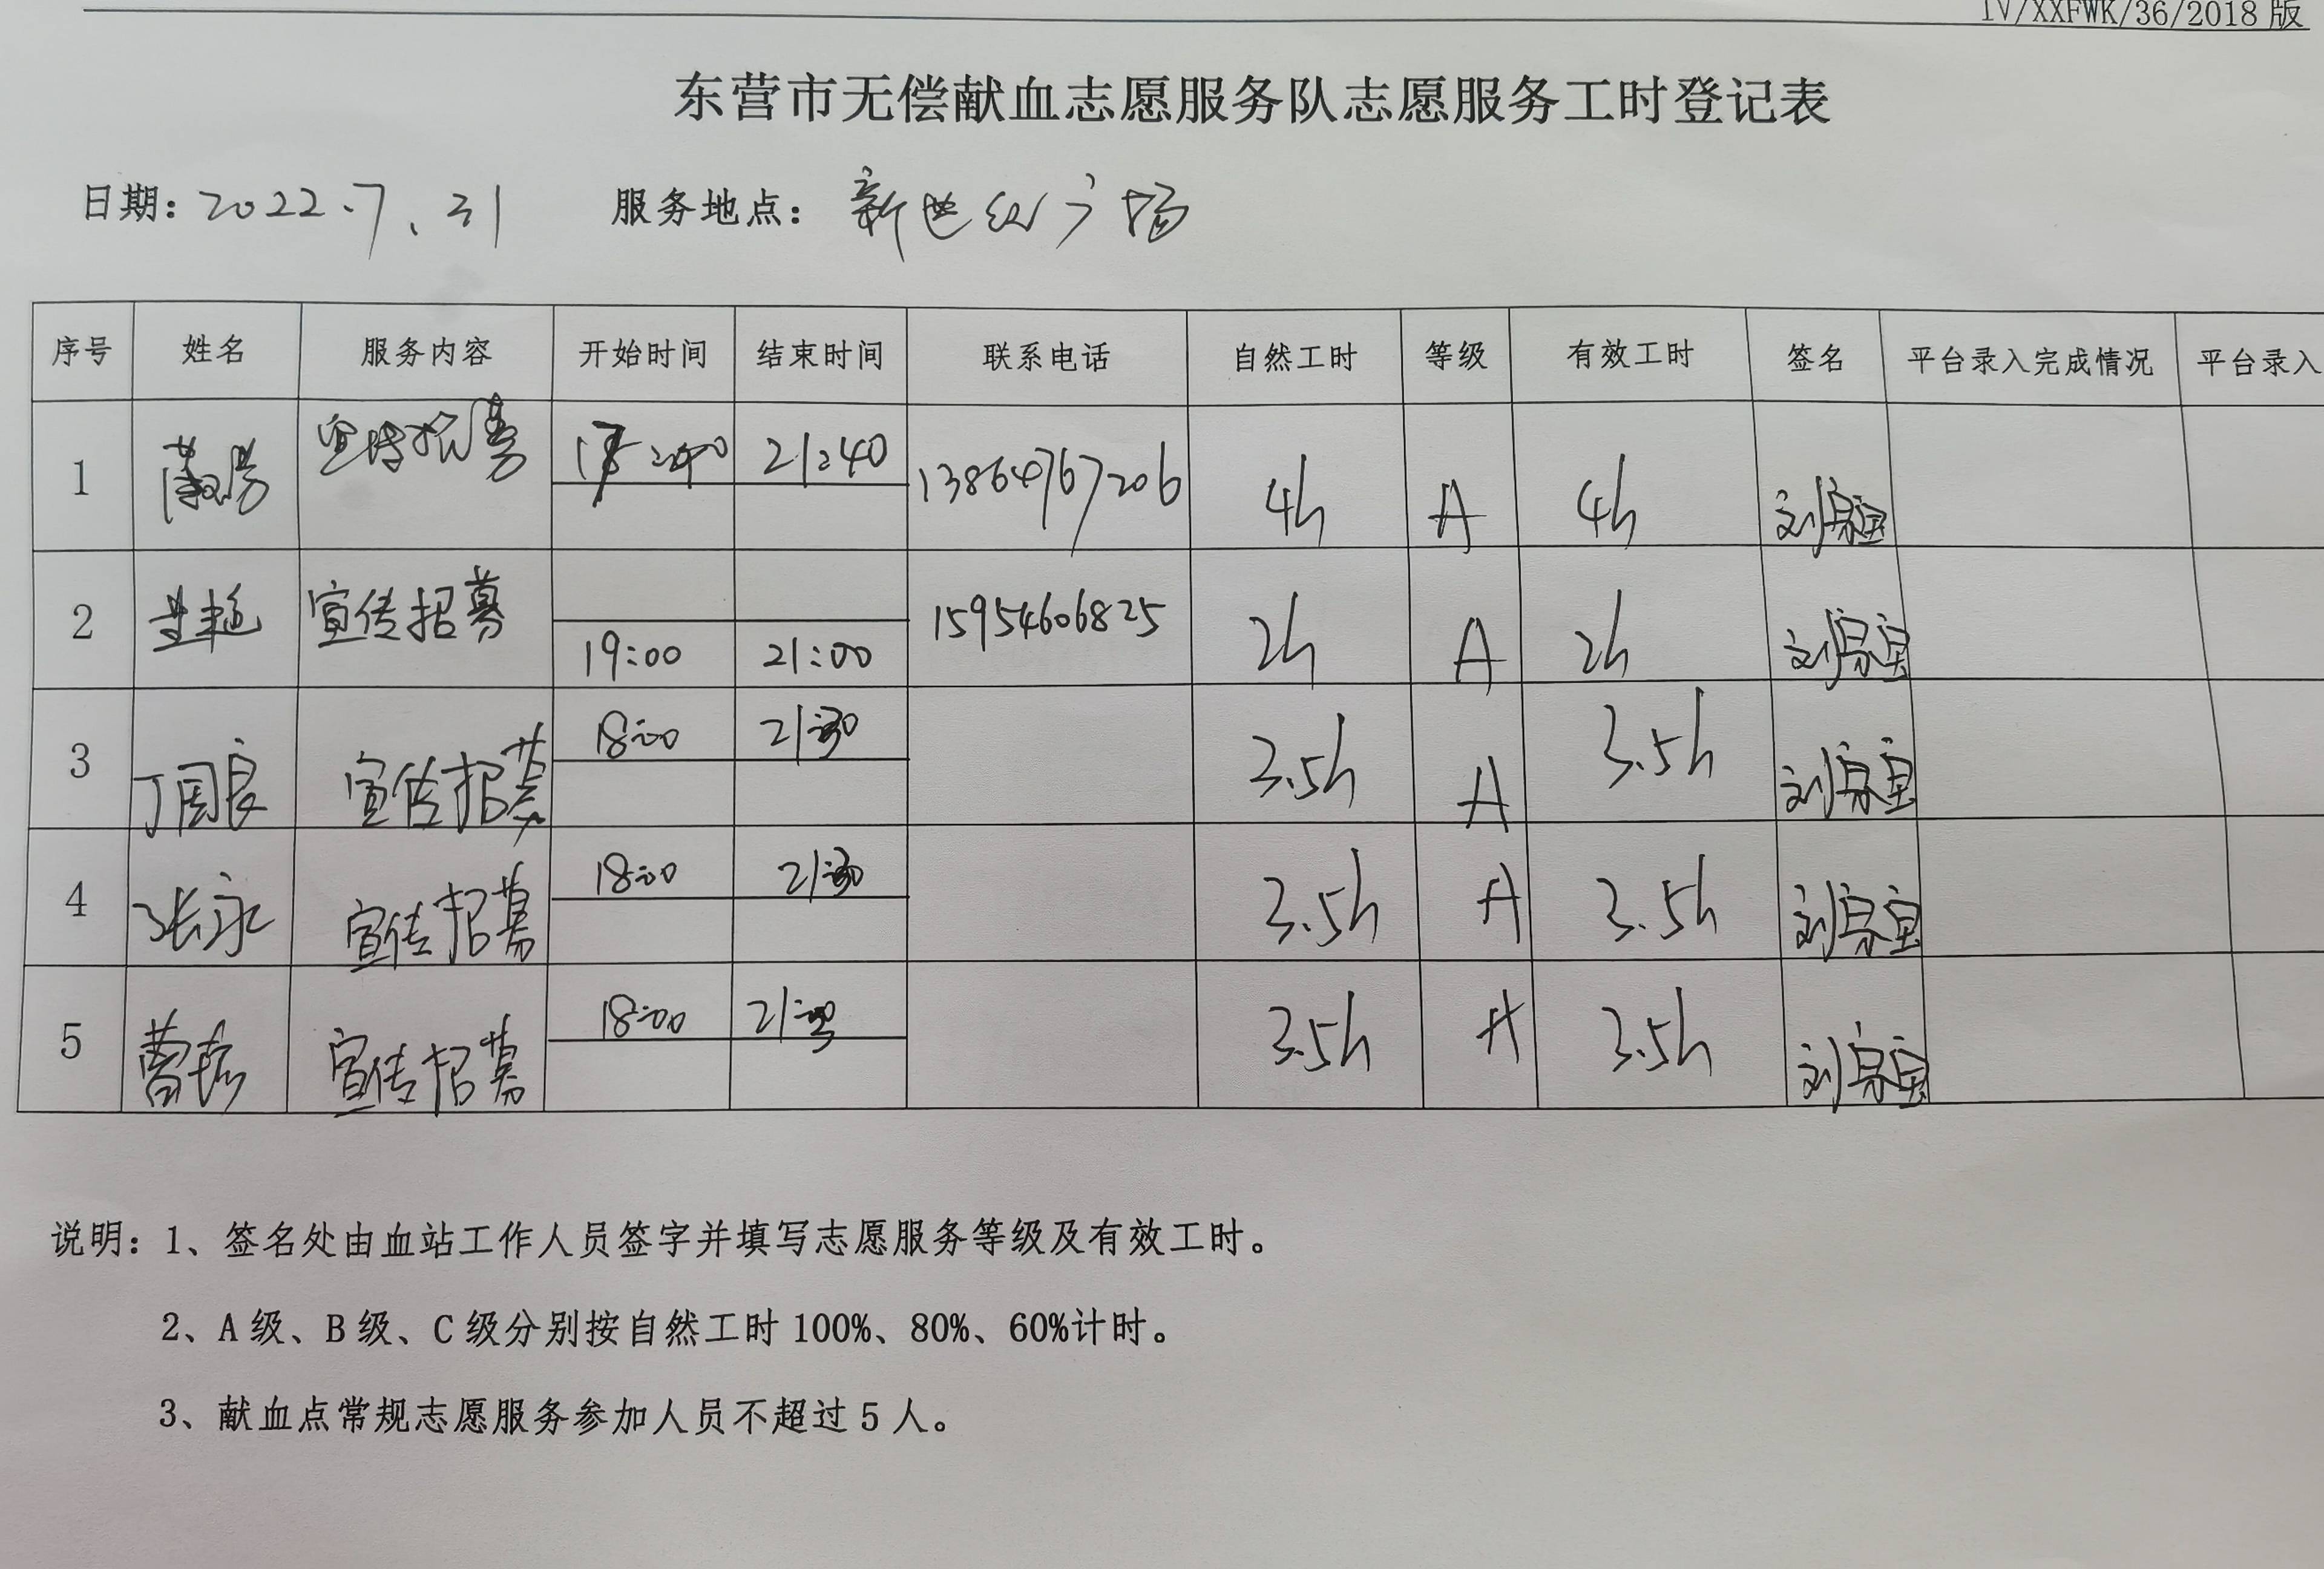 IV/XXFWK/36/2018 版
东营市无偿献血志愿服务队志愿服务工时登记表
日期: 2022.7.31 服务地点: 新世纪广场
序号 姓名 服务内容 开始时间 结束时间 联系电话 自然工时 等级 有效工时 签名 平台录入完成情况 平台录入
1 宣传招募 21:40 13864767206 4h A 4h
2 宣传招募 19:00 21:00 15954606825 2h A 2h
3 丁周良 宣传招募 18:00 21:30 3.5h A 3.5h
4 张永 宣传招募 18:00 21:30 3.5h A 3.5h
5 宣传招募 18:00 21:30 3.5h A 3.5h
说明: 1、签名处由血站工作人员签字并填写志愿服务等级及有效工时。
2、A 级、B 级、C 级分别按自然工时 100%、80%、60%计时。
3、献血点常规志愿服务参加人员不超过 5 人。